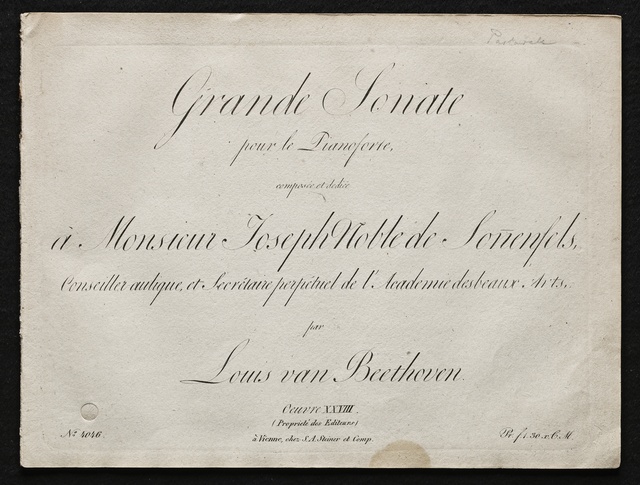 Pastorale
Grande Sonate
pour le Pianoforte,
composée et dediée
à Monsieur Joseph Noble de Soñenfels,
Conseiller aulique, et Secrétaire perpétuel de l'Academie des beaux Arts,
par
Louis van Beethoven.
Oeuvre XXVIII.
(Propriété des Editeurs)
à Vienne, chez S.A. Steiner et Comp.
No. 4046.
Pr. f 1.30 x C.M.